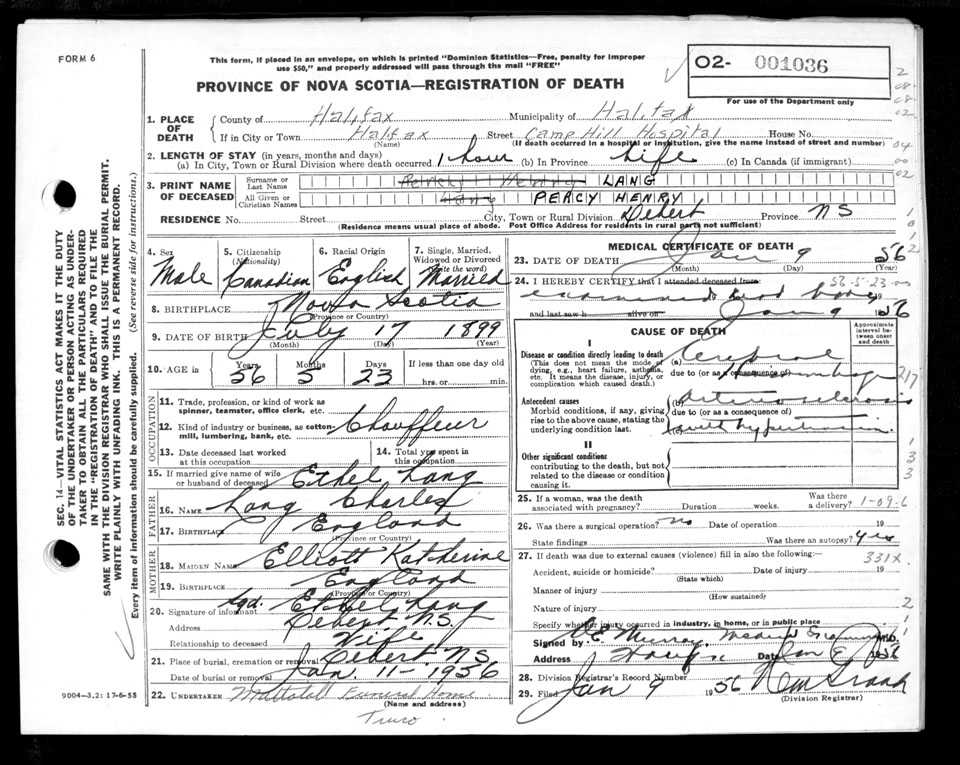 FORM 6
This form, if placed in an envelope, on which is printed "Dominion Statistics—Free, penalty for improper
use $50," and properly addressed will pass through the mail "FREE"
PROVINCE OF NOVA SCOTIA—REGISTRATION OF DEATH
02- 001036
For use of the Department only
1. PLACE OF DEATH
County of Halifax Municipality of Halifax
If in City or Town Halifax Street Camp Hill Hospital House No.
(Name) (If death occurred in a hospital or institution, give the name instead of street and number)
2. LENGTH OF STAY (in years, months and days)
(a) In City, Town or Rural Division where death occurred 1 hour (b) In Province Life (c) In Canada (if immigrant)
3. PRINT NAME OF DECEASED
Surname or Last Name LANG
All Given or Christian Names PERCY HENRY
RESIDENCE No. Street City, Town or Rural Division Debert Province NS
(Residence means usual place of abode. Post Office Address for residents in rural parts not sufficient)
4. Sex Male
5. Citizenship (Nationality) Canadian
6. Racial Origin English
7. Single, Married, Widowed or Divorced (write the word) Married
8. BIRTHPLACE Nova Scotia
(Province or Country)
9. DATE OF BIRTH July 17 1899
(Month) (Day) (Year)
10. AGE in Years 56 Months 5 Days 23 If less than one day old hrs. or min.
OCCUPATION
11. Trade, profession, or kind of work as spinner, teamster, office clerk, etc.
12. Kind of industry or business, as cotton-mill, lumbering, bank, etc. Chauffeur
13. Date deceased last worked at this occupation
14. Total yrs spent in this occupation
15. If married give name of wife or husband of deceased Ethel Lang
FATHER
16. NAME Lang Charles
17. BIRTHPLACE England
(Province or Country)
MOTHER
18. MAIDEN NAME Elliott Katherine
19. BIRTHPLACE England
(Province or Country)
20. Signature of informant sgd. Ethel Lang
Address Debert N.S.
Relationship to deceased Wife
21. Place of burial, cremation or removal Debert NS
Date of burial or removal Jan. 11 - 1956
22. UNDERTAKER Funeral Home
(Name and address)
Truro
MEDICAL CERTIFICATE OF DEATH
23. DATE OF DEATH Jan 9 1956
(Month) (Day) (Year)
24. I HEREBY CERTIFY that I attended deceased from:
examined dead body 19
and last saw h alive on Jan 9 1956
CAUSE OF DEATH
Approximate interval between onset and death
I
Disease or condition directly leading to death (a) Cerebral
(This does not mean the mode of dying, e.g., heart failure, asthenia, etc. It means the disease, injury, or complication which caused death.)
due to (or as a consequence of) Hemorrhage
Antecedent causes (b) Arteriosclerosis
Morbid conditions, if any, giving rise to the above cause, stating the underlying condition last.
due to (or as a consequence of)
(c) with hypertension
II
Other significant conditions
contributing to the death, but not related to the disease or condition causing it.
25. If a woman, was the death associated with pregnancy? Duration weeks. Was there a delivery? 1-09-6
26. Was there a surgical operation? no Date of operation 19
State findings Was there an autopsy? yes
27. If death was due to external causes (violence) fill in also the following: 331X
Accident, suicide or homicide? Date of injury 19
(State which)
Manner of injury
(How sustained)
Nature of injury
Specify whether injury occurred in industry, in home, or in public place
Signed by Murray, Medical Examiner M.D.
Address Date Jan 1956
28. Division Registrar's Record Number
29. Filed Jan 9 1956
(Division Registrar)
SEC. 14—VITAL STATISTICS ACT MAKES IT THE DUTY
OF THE UNDERTAKER OR PERSON ACTING AS UNDER-
TAKER TO OBTAIN ALL THE PARTICULARS REQUIRED
IN THE "REGISTRATION OF DEATH" AND TO FILE THE
SAME WITH THE DIVISION REGISTRAR WHO SHALL ISSUE THE BURIAL PERMIT.
WRITE PLAINLY WITH UNFADING INK. THIS IS A PERMANENT RECORD.
Every item of information should be carefully supplied. (See reverse side for instructions.)
9004—3.2: 17-6-55